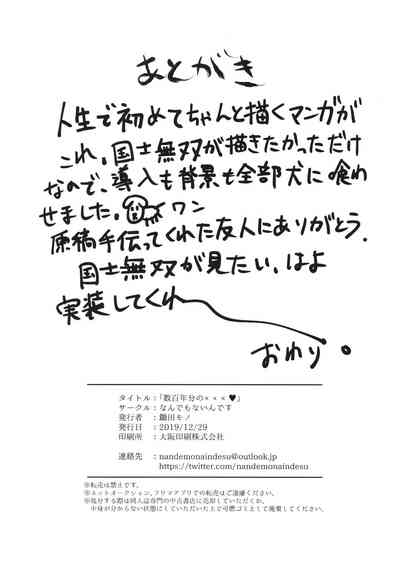 あとがき
人生で初めてちゃんと描くマンガが
これ。国士無双が描きたかっただけ
なので、導入も背景も全部犬に喰わ
せました。ワン
原稿手伝ってくれた友人にありがとう.
国士無双が見たい。はよ
実装してくれー
おわり。
タイトル:「数百年分の×××♥」
サークル:なんでもないんです
発行者 :鋤田モノ
発行日 :2019/12/29
印刷所 :大阪印刷株式会社
連絡先 :nandemonaindesu@outlook.jp
https://twitter.com/nandemonaindesu
※転売は禁止です。
※ネットオークション、フリマアプリでの転売はご遠慮ください。
※処分する際は同人誌専門の中古書店に売却していただくか、
中身が分からない状態にしていただいた上で可燃ゴミとして廃棄してください。